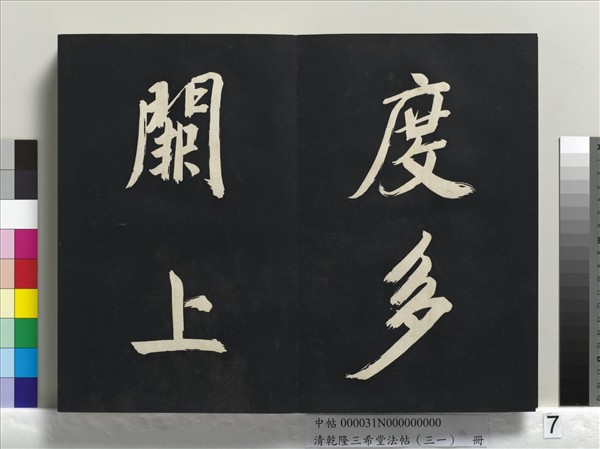 度多
闕上
中帖 000031N000000000
清乾隆三希堂法帖（三一） 冊
7